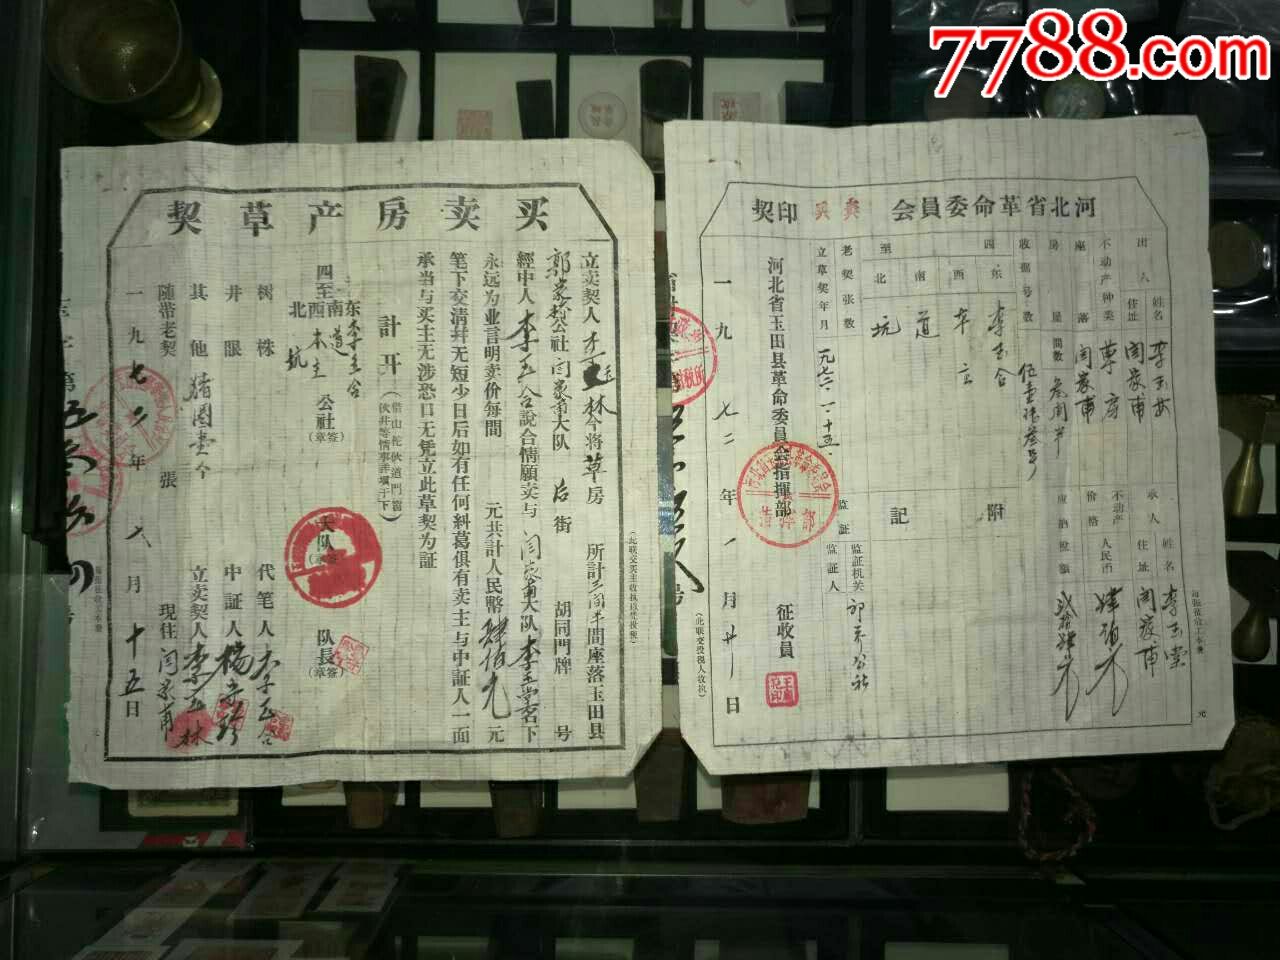 7788.com
买卖房产草契
立卖契人李玉林今将草房 所計三间半間座落玉田县
郭家桥公社闫家甫大队 后街 胡同門牌 号
經中人李玉合說合情願卖与 闫家甫大队李玉堂名下
永远为业言明卖价每間 元共計人民幣肆佰元 元
笔下交清幷无短少日后如有任何糾葛俱有卖主与中証人一面
承当与买主无涉恐口无凭立此草契为証
計开
四至
东李玉合
南道
西本主
北坑
公社(签章)
大队
队長(签章)
树株
井眼
其他 猪圈壹个
随带老契 張
代笔人李玉合
中証人杨
立卖契人李玉林
現住闫家甫
一九七二年 一月十五日
(此联交买主收执以凭投税)
河北省革命委員会 买卖 契印
出人 姓名 李玉林
住址 闫家甫
不动产种类 草房
座落 闫家甫
房屋間数 叁间半
收据号数 伍壹
四至
东 李玉合
西 本主
南 道
北 坑
老契张数
立草契年月 一九七二·一·十五
承人 姓名 李玉堂
住址 闫家甫
不动产价格 人民币 肆佰元
应纳税额 贰拾肆元
附記
監証
監証机关
監証人
河北省玉田县革命委員会指揮部
征收員
一九七二年一月廿一日
(此联交投税人收执)
每張征收工本費
元